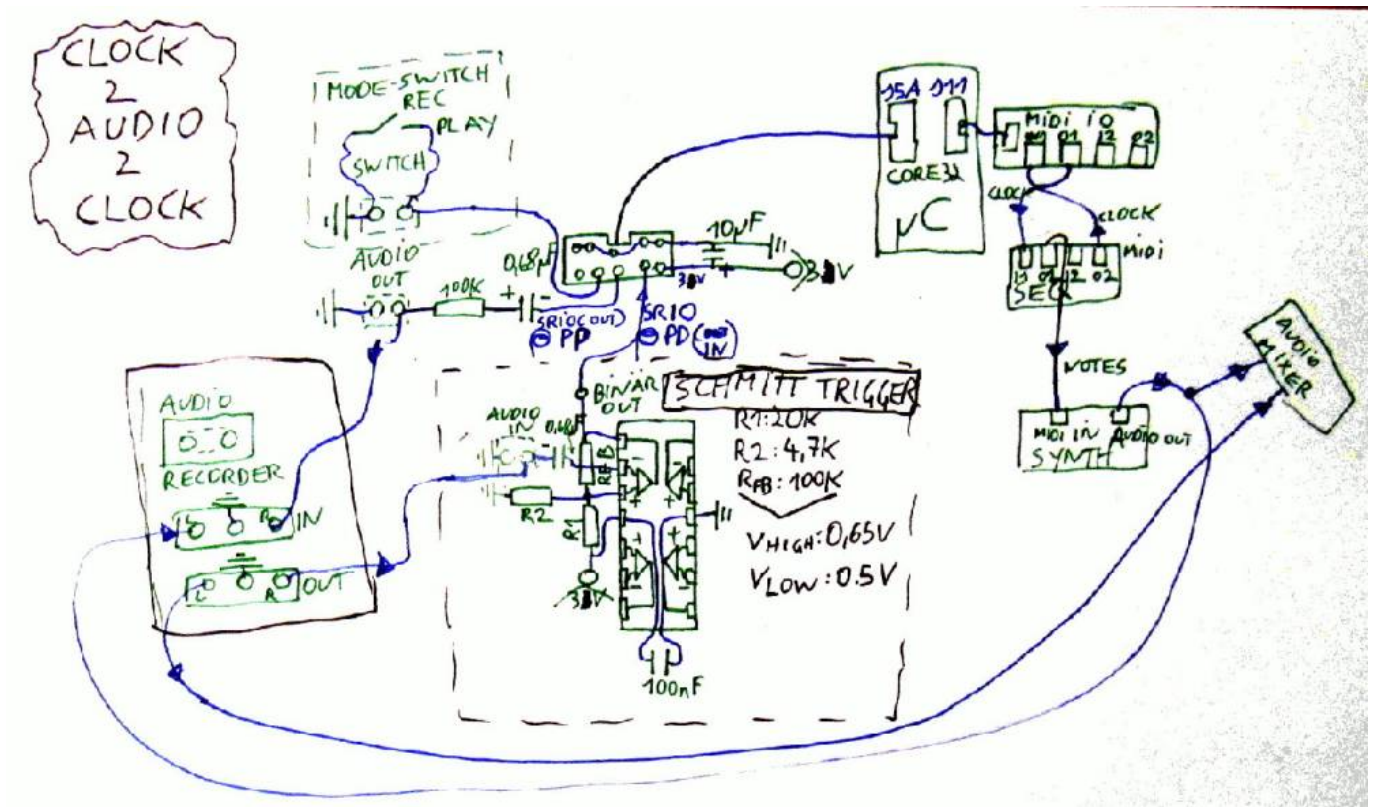 CLOCK
2
AUDIO
2
CLOCK
MODE-SWITCH
REC
PLAY
SWITCH
AUDIO
OUT
100K
0,68µF
+ -
10µF
+
SRIO (OUT)
PD
SRIO
PD
IN
J5A J11
CORE32
µC
MIDI IO
O1 I2 O2
CLOCK
CLOCK
MIDI
I1 O1 I2 O2
SEQ
NOTES
MIDI IN
AUDIO OUT
SYNTH
AUDIO
MIXER
AUDIO
RECORDER
L R IN
L R OUT
BINAR
OUT
AUDIO
IN
0,68µF
RFB
R2
R1
100nF
SCHMITT TRIGGER
R1:20K
R2:4,7K
RFB:100K
VHIGH:0,65V
VLOW:0.5V